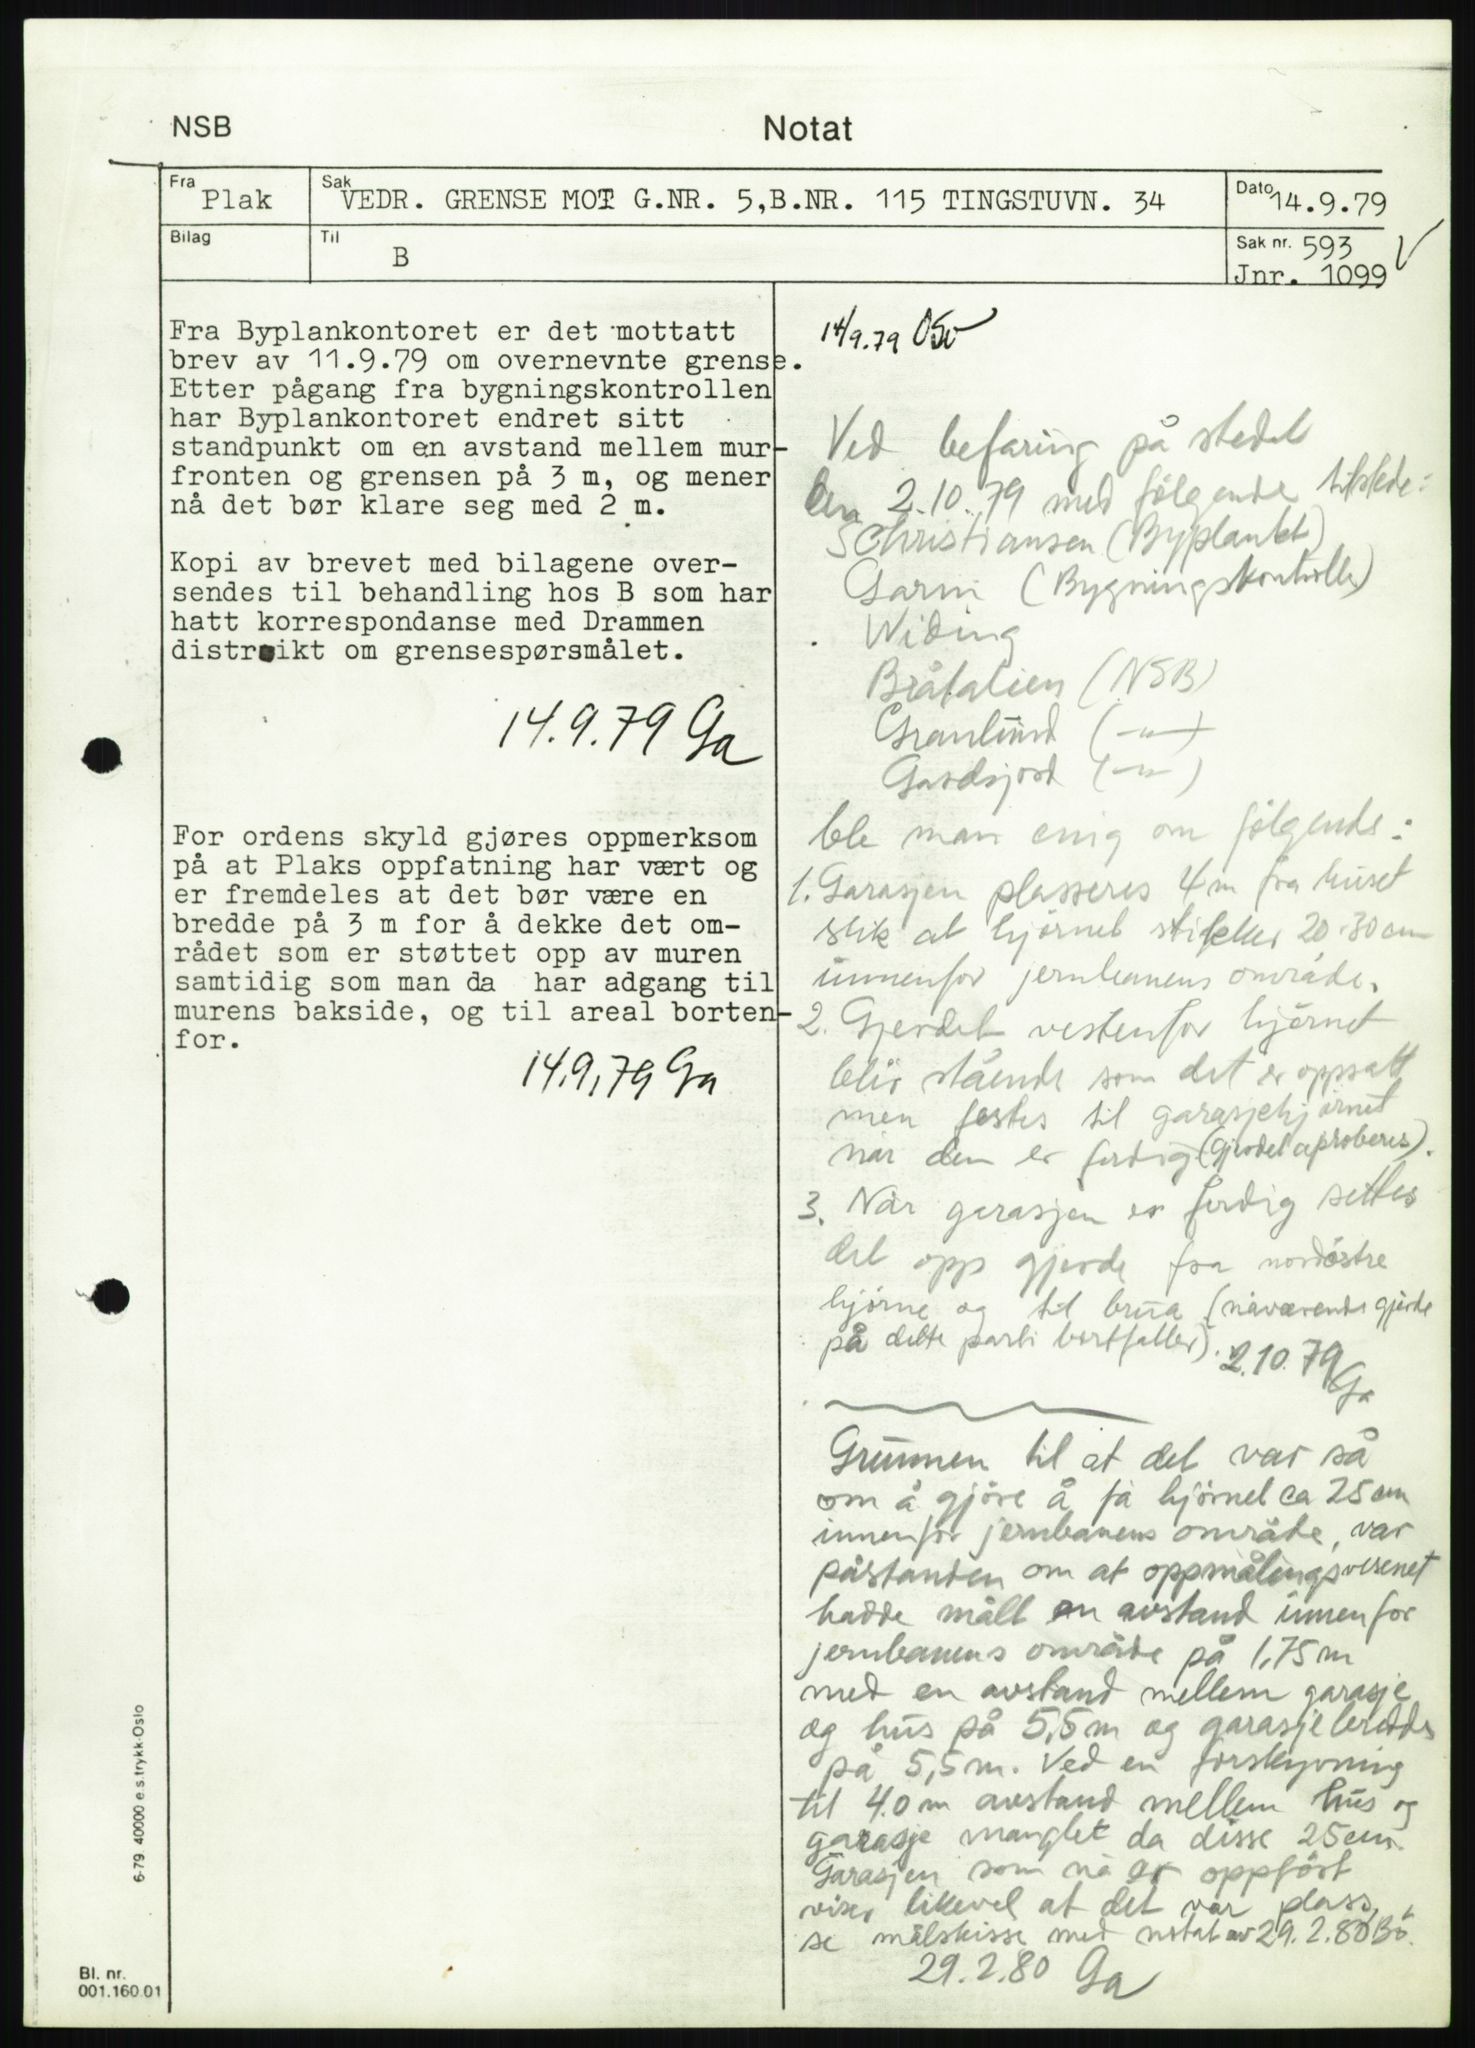 NSB
Notat
Fra Plak
Sak VEDR. GRENSE MOT G.NR. 5,B.NR. 115 TINGSTUVN. 34
Dato 14.9.79
Bilag
Til B
Sak nr. 593 V
Jnr. 1099
Fra Byplankontoret er det mottatt
brev av 11.9.79 om overnevnte grense.
Etter pågang fra bygningskontrollen
har Byplankontoret endret sitt
standpunkt om en avstand mellem mur-
fronten og grensen på 3 m, og mener
nå det bør klare seg med 2 m.
Kopi av brevet med bilagene over-
sendes til behandling hos B som har
hatt korrespondanse med Drammen
distrikt om grensespørsmålet.
14.9.79 Ga
For ordens skyld gjøres oppmerksom
på at Plaks oppfatning har vært og
er fremdeles at det bør være en
bredde på 3 m for å dekke det om-
rådet som er støttet opp av muren
samtidig som man da har adgang til
murens bakside, og til areal borten-
for.
14.9.79 Ga
14/9.79
Ved befaring på stedet
den 2.10.79 med følgende tilstede:
Christiansen (Byplankt)
Garni (Bygningskontrolle)
Widing
Bråtalien (NSB)
Granlund (—"—)
Gardsjord (—"—)
ble man enig om følgende:
1. Garasjen plasseres 4m fra huset
slik at hjørnet stikker 20-30cm
innenfor jernbanens område.
2. Gjerdet vestenfor hjørnet
blir stående som det er oppsatt
men festes til garasjehjørnet
når den er ferdig (Gjerdet aproberes).
3. Når garasjen er ferdig settes
det opp gjerde fra nordöstre
hjørne og til brua (nåværende gjerde
på dette parti bortfaller).
2.10.79
Ga
Grunnen til at det var så
om å gjöre å få hjörnet ca 25cm
innenfor jernbanens område, var
påstanden om at oppmålingsvesenet
hadde målt en avstand innenfor
jernbanens område på 1,75m
med en avstand mellem garasje
og hus på 5,5m og garasjebredde
på 5,5m. Ved en forskyvning
til 4.0m avstand mellem hus og
garasje manglet da disse 25cm.
Garasjen som nå er oppfört
viser likevel at det var plass,
se målskisse med notat av 29.2.80 Bö.
29.2.80 Ga
6-79 40000 e.s.trykk-Oslo
Bl. nr.
001.160.01